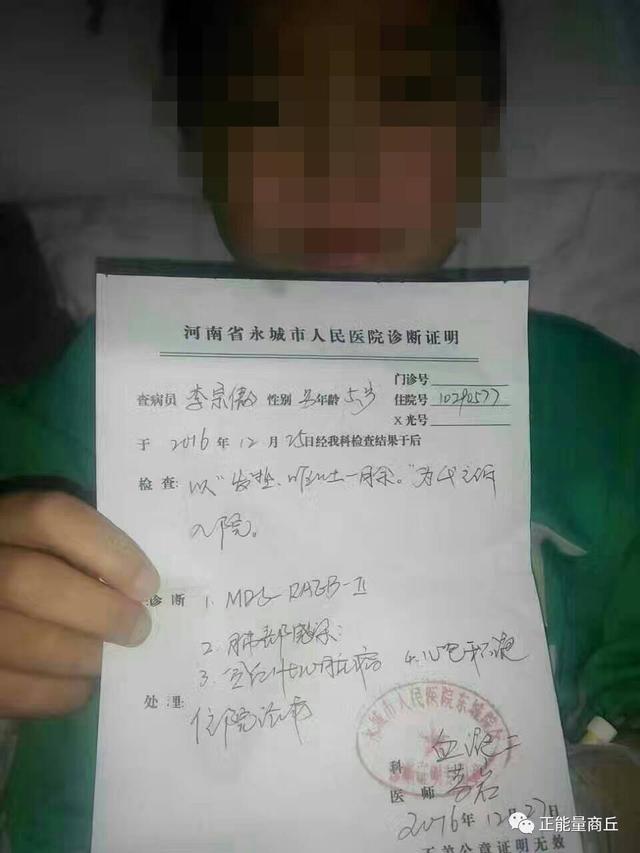 河南省永城市人民医院诊断证明
门诊号
查病员 李宗傲 性别 男 年龄 5岁 住院号 10290577
X光号
于 2016 年 12 月 25 日经我科检查结果于后
检查: 以"发热、呕吐一月余。"为代主诉
入院。
诊断 1. MDS-RAEB-II
2. 肺部感染
3. 4. 心包积液
处理: 住院治疗
永城市人民医院东城
科
医师
2016 年 12 月 27 日
无公章证明无效
正能量商丘